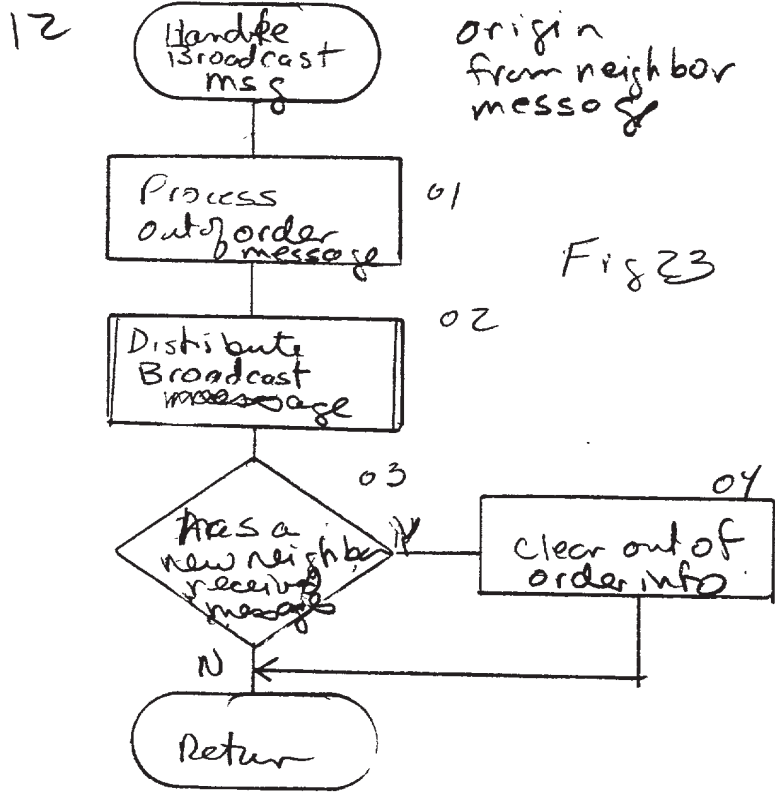 12
Handle
Broadcast
msg
origin
from neighbor
message
Process
out of order
message
01
Fig 23
Distribute
Broadcast
message
02
03
Has a
new neighbor
received
message
Y
04
clear out of
order info
N
Return